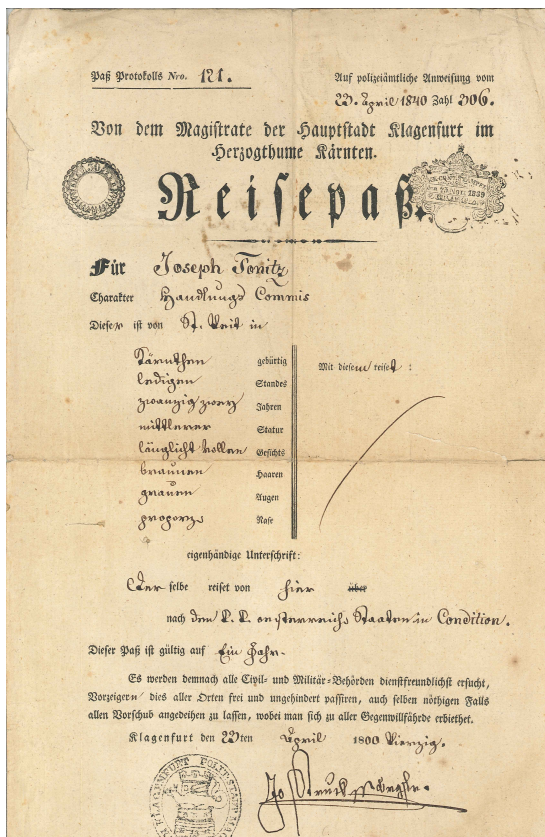 Paß Protokolls Nro. 121.
Auf polizeiämtliche Anweisung vom
23. April 1840 Zahl 306.
Von dem Magistrate der Hauptstadt Klagenfurt im
Herzogthume Kärnten.
Reisepaß.
Für Joseph Tonitz
Charakter Handlungs Commis
Dieser ist von St. Veit in
Kärnthen gebürtig
Mit diesem reiset:
ledigen Standes
zwanzig zwey Jahren
mittlerer Statur
länglicht vollen Gesichts
braunen Haaren
grauen Augen
proporz. Nase
eigenhändige Unterschrift:
Der selbe reiset von hier über
nach den k. k. oesterreich. Staaten in Condition.
Dieser Paß ist gültig auf Ein Jahr.
Es werden demnach alle Civil- und Militär-Behörden dienstfreundlichst ersucht,
Vorzeigern dies aller Orten frei und ungehindert passiren, auch selben nöthigen Falls
allen Vorschub angedeihen zu lassen, wobei man sich zu aller Gegenwillfährde erbiethet.
Klagenfurt den 23ten April 1800 Vierzig.